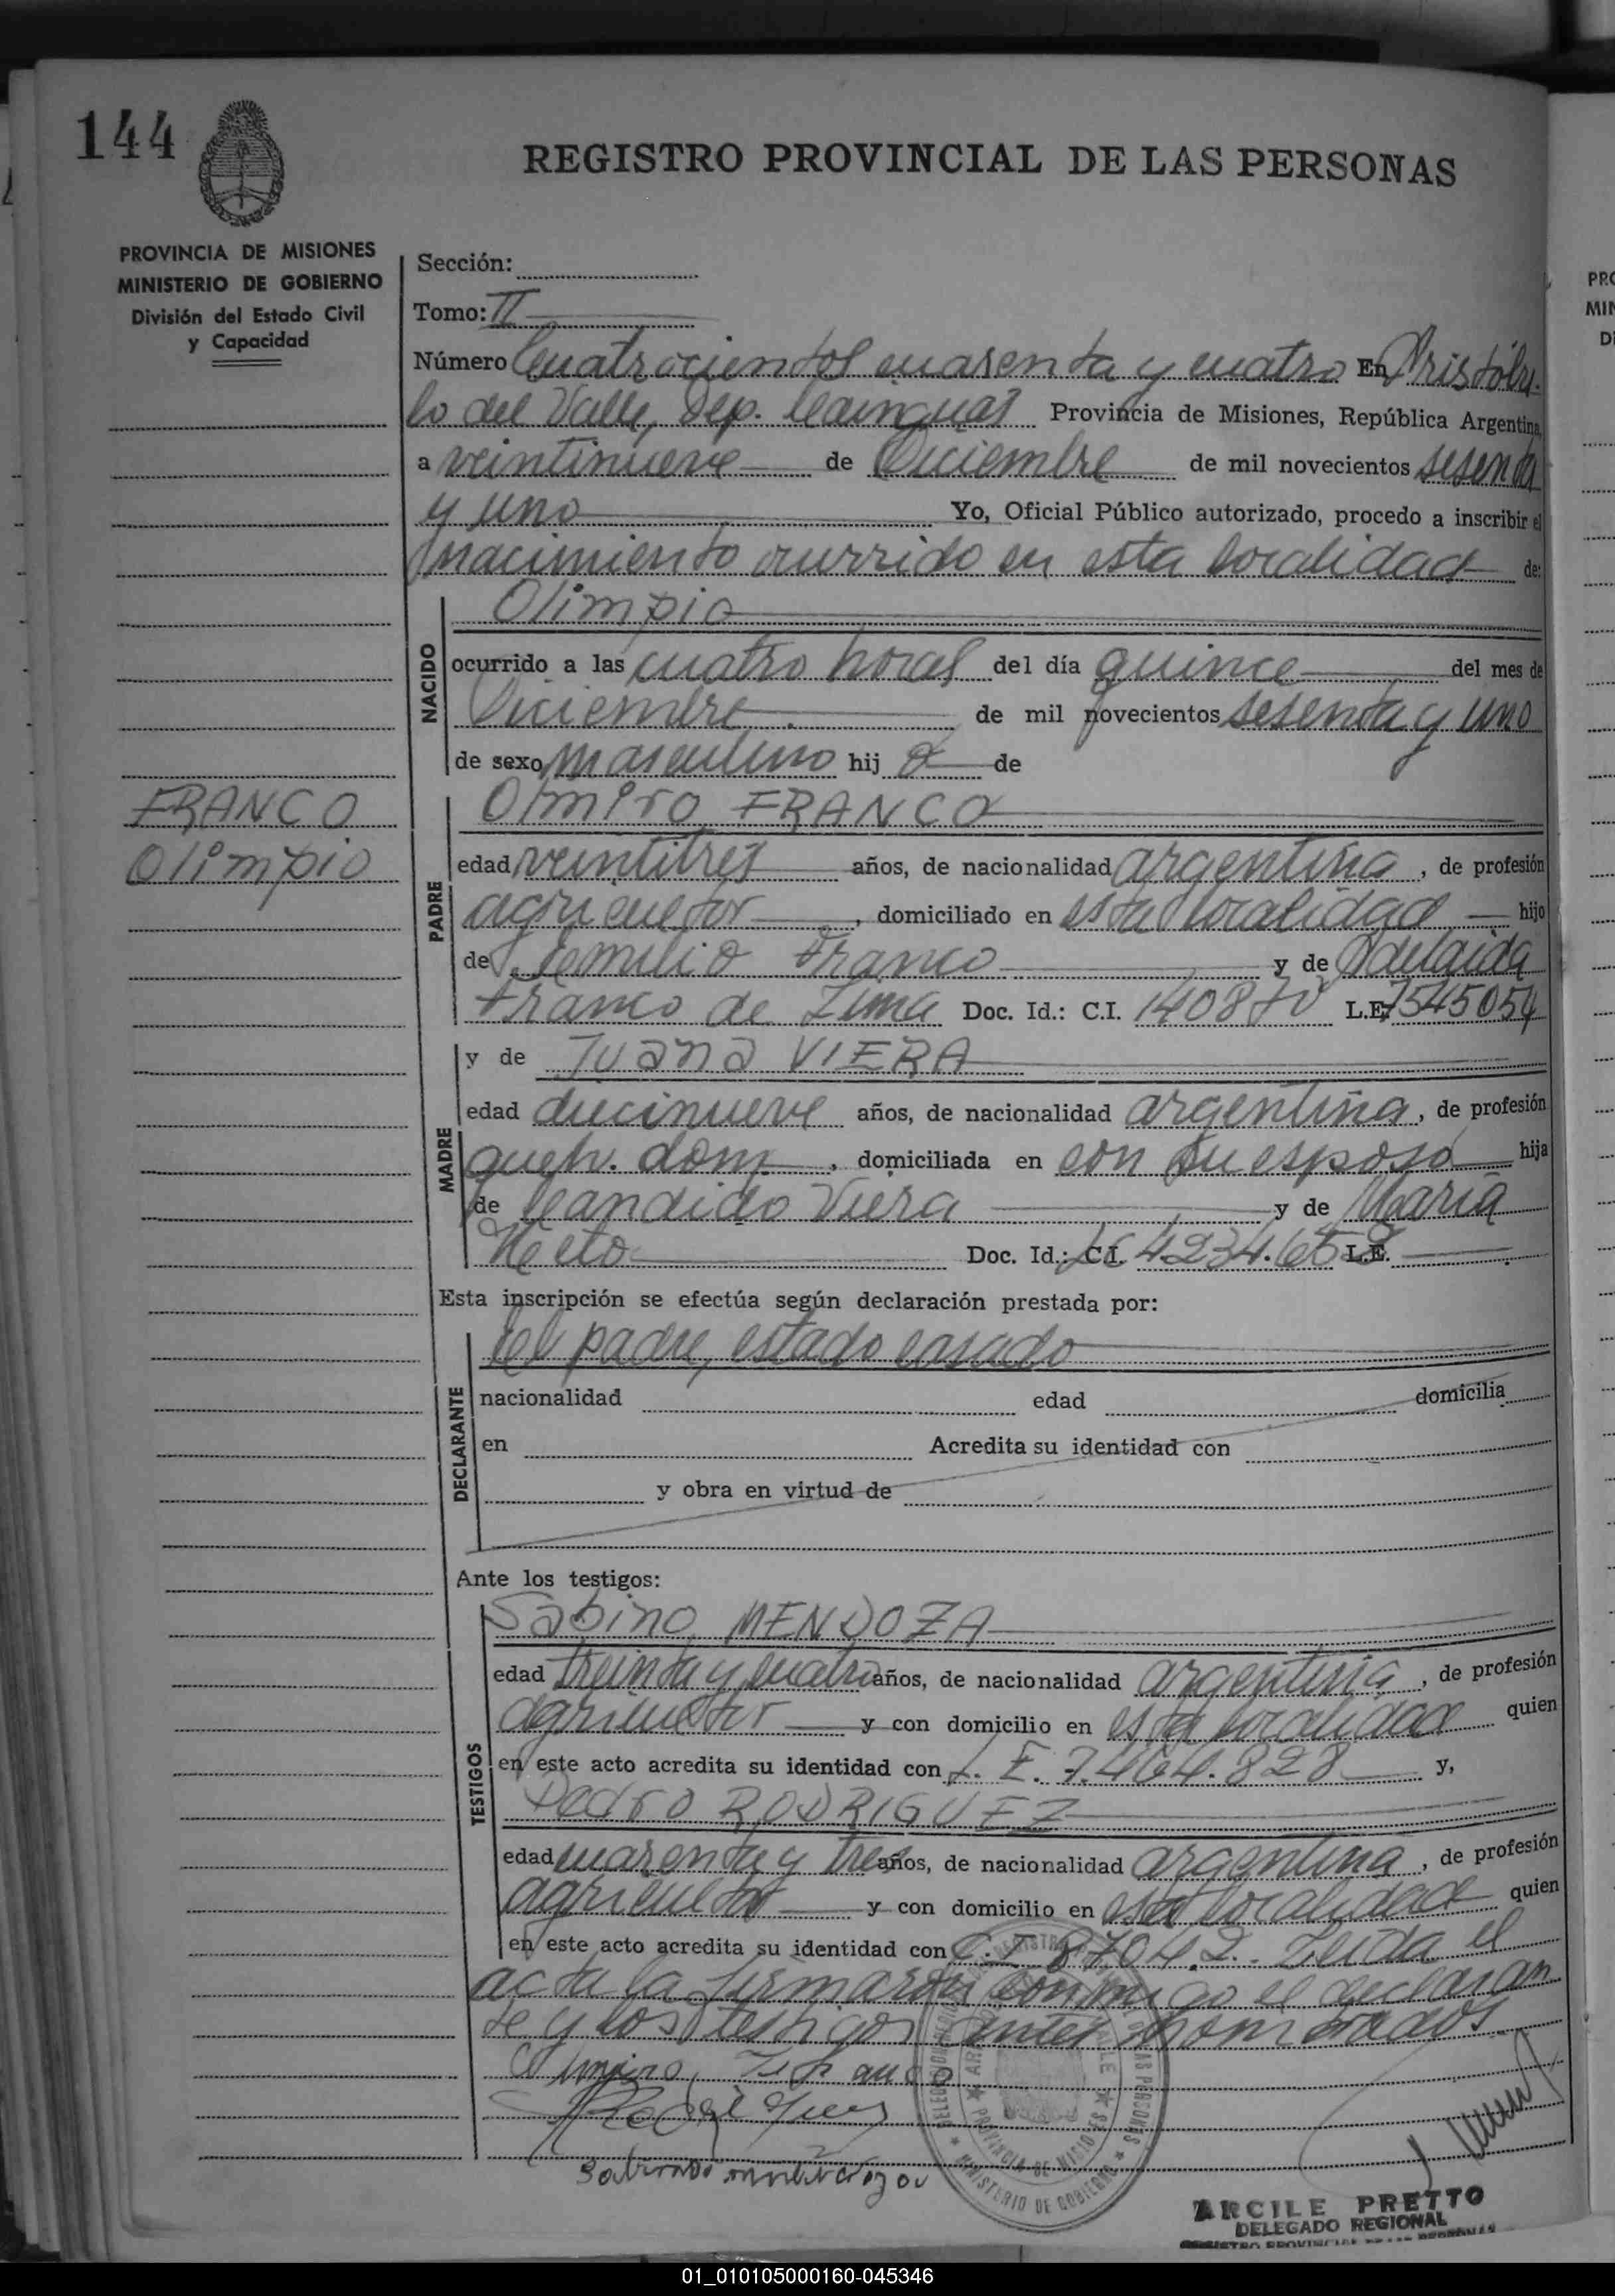 144
REGISTRO PROVINCIAL DE LAS PERSONAS
PROVINCIA DE MISIONES
MINISTERIO DE GOBIERNO
División del Estado Civil
y Capacidad
Sección:
Tomo: II
Número Cuatrocientos cuarenta y cuatro En Aristóbu-
lo del Valle, Dep. Cainguas Provincia de Misiones, República Argentina,
a veintinueve de Diciembre de mil novecientos sesenta
y uno Yo, Oficial Público autorizado, procedo a inscribir el
nacimiento ocurrido en esta localidad de:
NACIDO
Olimpio
ocurrido a las cuatro horas del día quince del mes de
Diciembre de mil novecientos sesenta y uno
de sexo masculino hij o de
FRANCO
Olimpio
PADRE
Olmiro FRANCO
edad veintitres años, de nacionalidad argentina, de profesión
agricultor, domiciliado en esta localidad hijo
de Emilio Franco y de Adelaida
Franco de Lima Doc. Id.: C.I. 140870 L.E. 7545054
MADRE
y de Juana VIERA
edad diecinueve años, de nacionalidad argentina, de profesión
queh. dom., domiciliada en con su esposo hija
de Candido Viera y de Maria
Neto Doc. Id.: C.I. 4.234.658 L.E.
Esta inscripción se efectúa según declaración prestada por:
DECLARANTE
el padre, estado casado
nacionalidad edad domicilia
en Acredita su identidad con
y obra en virtud de
Ante los testigos:
TESTIGOS
Sabino MENDOZA
edad treinta y cuatro años, de nacionalidad argentina, de profesión
agricultor y con domicilio en esta localidad quien
en este acto acredita su identidad con L. E. 7.464.828 y,
Pedro RODRIGUEZ
edad cuarenta y tres años, de nacionalidad argentina, de profesión
agricultor y con domicilio en esta localidad quien
en este acto acredita su identidad con C. I. 87042. Leida el
acta la firmaron conmigo el declaran
te y los testigos antes nombrados.
PROVINCIA DE MISIONES
MINISTERIO DE GOBIERNO
ARCILE PRETTO
DELEGADO REGIONAL
REGISTRO PROVINCIAL DE LAS PERSONAS
01_010105000160-045346